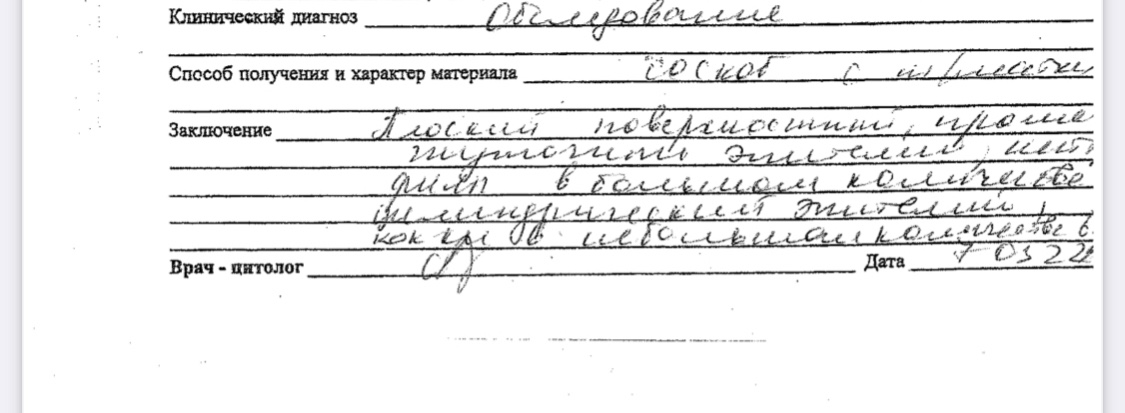 Клинический диагноз Обследование
Способ получения и характер материала соскоб с ш/матки
Заключение Плоский поверхностный, проме
жуточный эпителий, нейт
филы в большом количестве
цилиндрический эпителий,
кокки в небольшом количестве
Врач - цитолог Дата 7 03 22